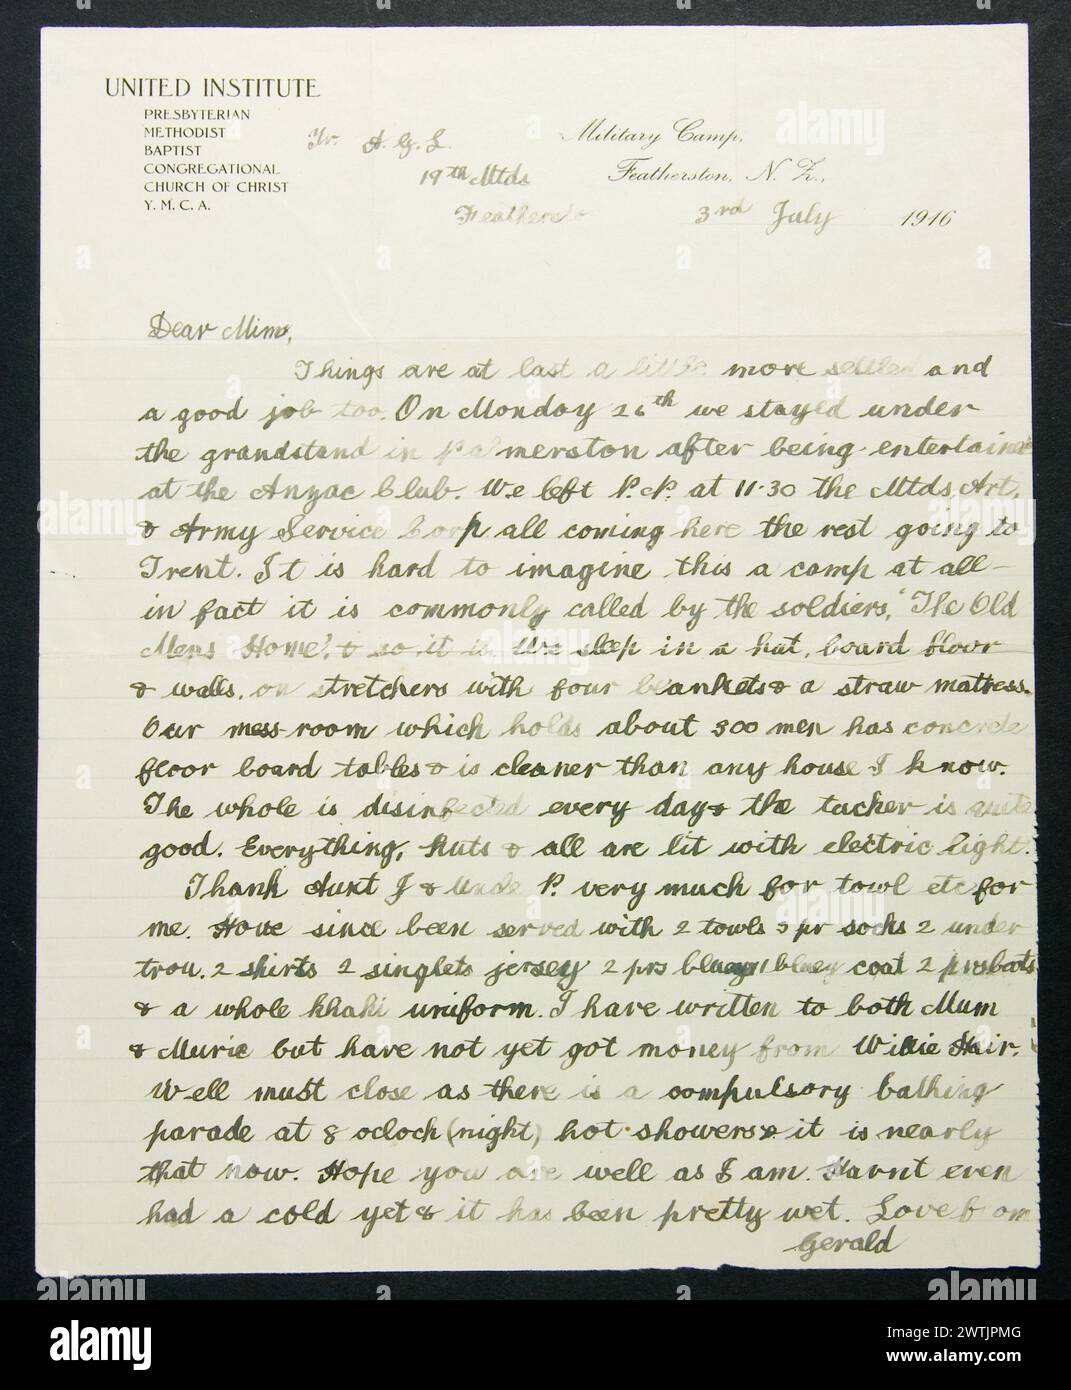 UNITED INSTITUTE
PRESBYTERIAN
METHODIST
BAPTIST
CONGREGATIONAL
CHURCH OF CHRIST
Y. M. C. A.
Tr. A. G. L.
19th Mtds
Military Camp,
Featherston, N. Z.,
3rd July 1916
Dear Mim,
Things are at last a little more settled and
a good job too. On Monday 26th we stayed under
the grandstand in Palmerston after being entertained
at the Anzac Club. We left P.N. at 11.30 the Mtds, Art,
& Army Service Corp all coming here the rest going to
Trent. It is hard to imagine this a camp at all -
in fact it is commonly called by the soldiers, "The Old
Mens Home", & so it is. We sleep in a hut, board floor
& walls, on stretchers with four blankets & a straw mattress.
Our mess-room which holds about 300 men has concrete
floor board tables & is cleaner than any house I know.
The whole is disinfected every day & the tucker is quite
good. Everything, huts & all are lit with electric light.
Thank Aunt J & Uncle P. very much for towl etc for
me. Have since been served with 2 towls 3 pr socks 2 under
trou. 2 shirts 2 singlets jersey 2 prs 1 bluey coat 2 prs boots
& a whole khaki uniform. I have written to both Mum
& Murie but have not yet got money from Willie Hair.
Well must close as there is a compulsory bathing
parade at 8 ocloch (night) hot showers & it is nearly
that now. Hope you are well as I am. Havnt even
had a cold yet & it has been pretty wet. Love from
Gerald
alamy
Image ID: 2WTJPMG
www.alamy.com